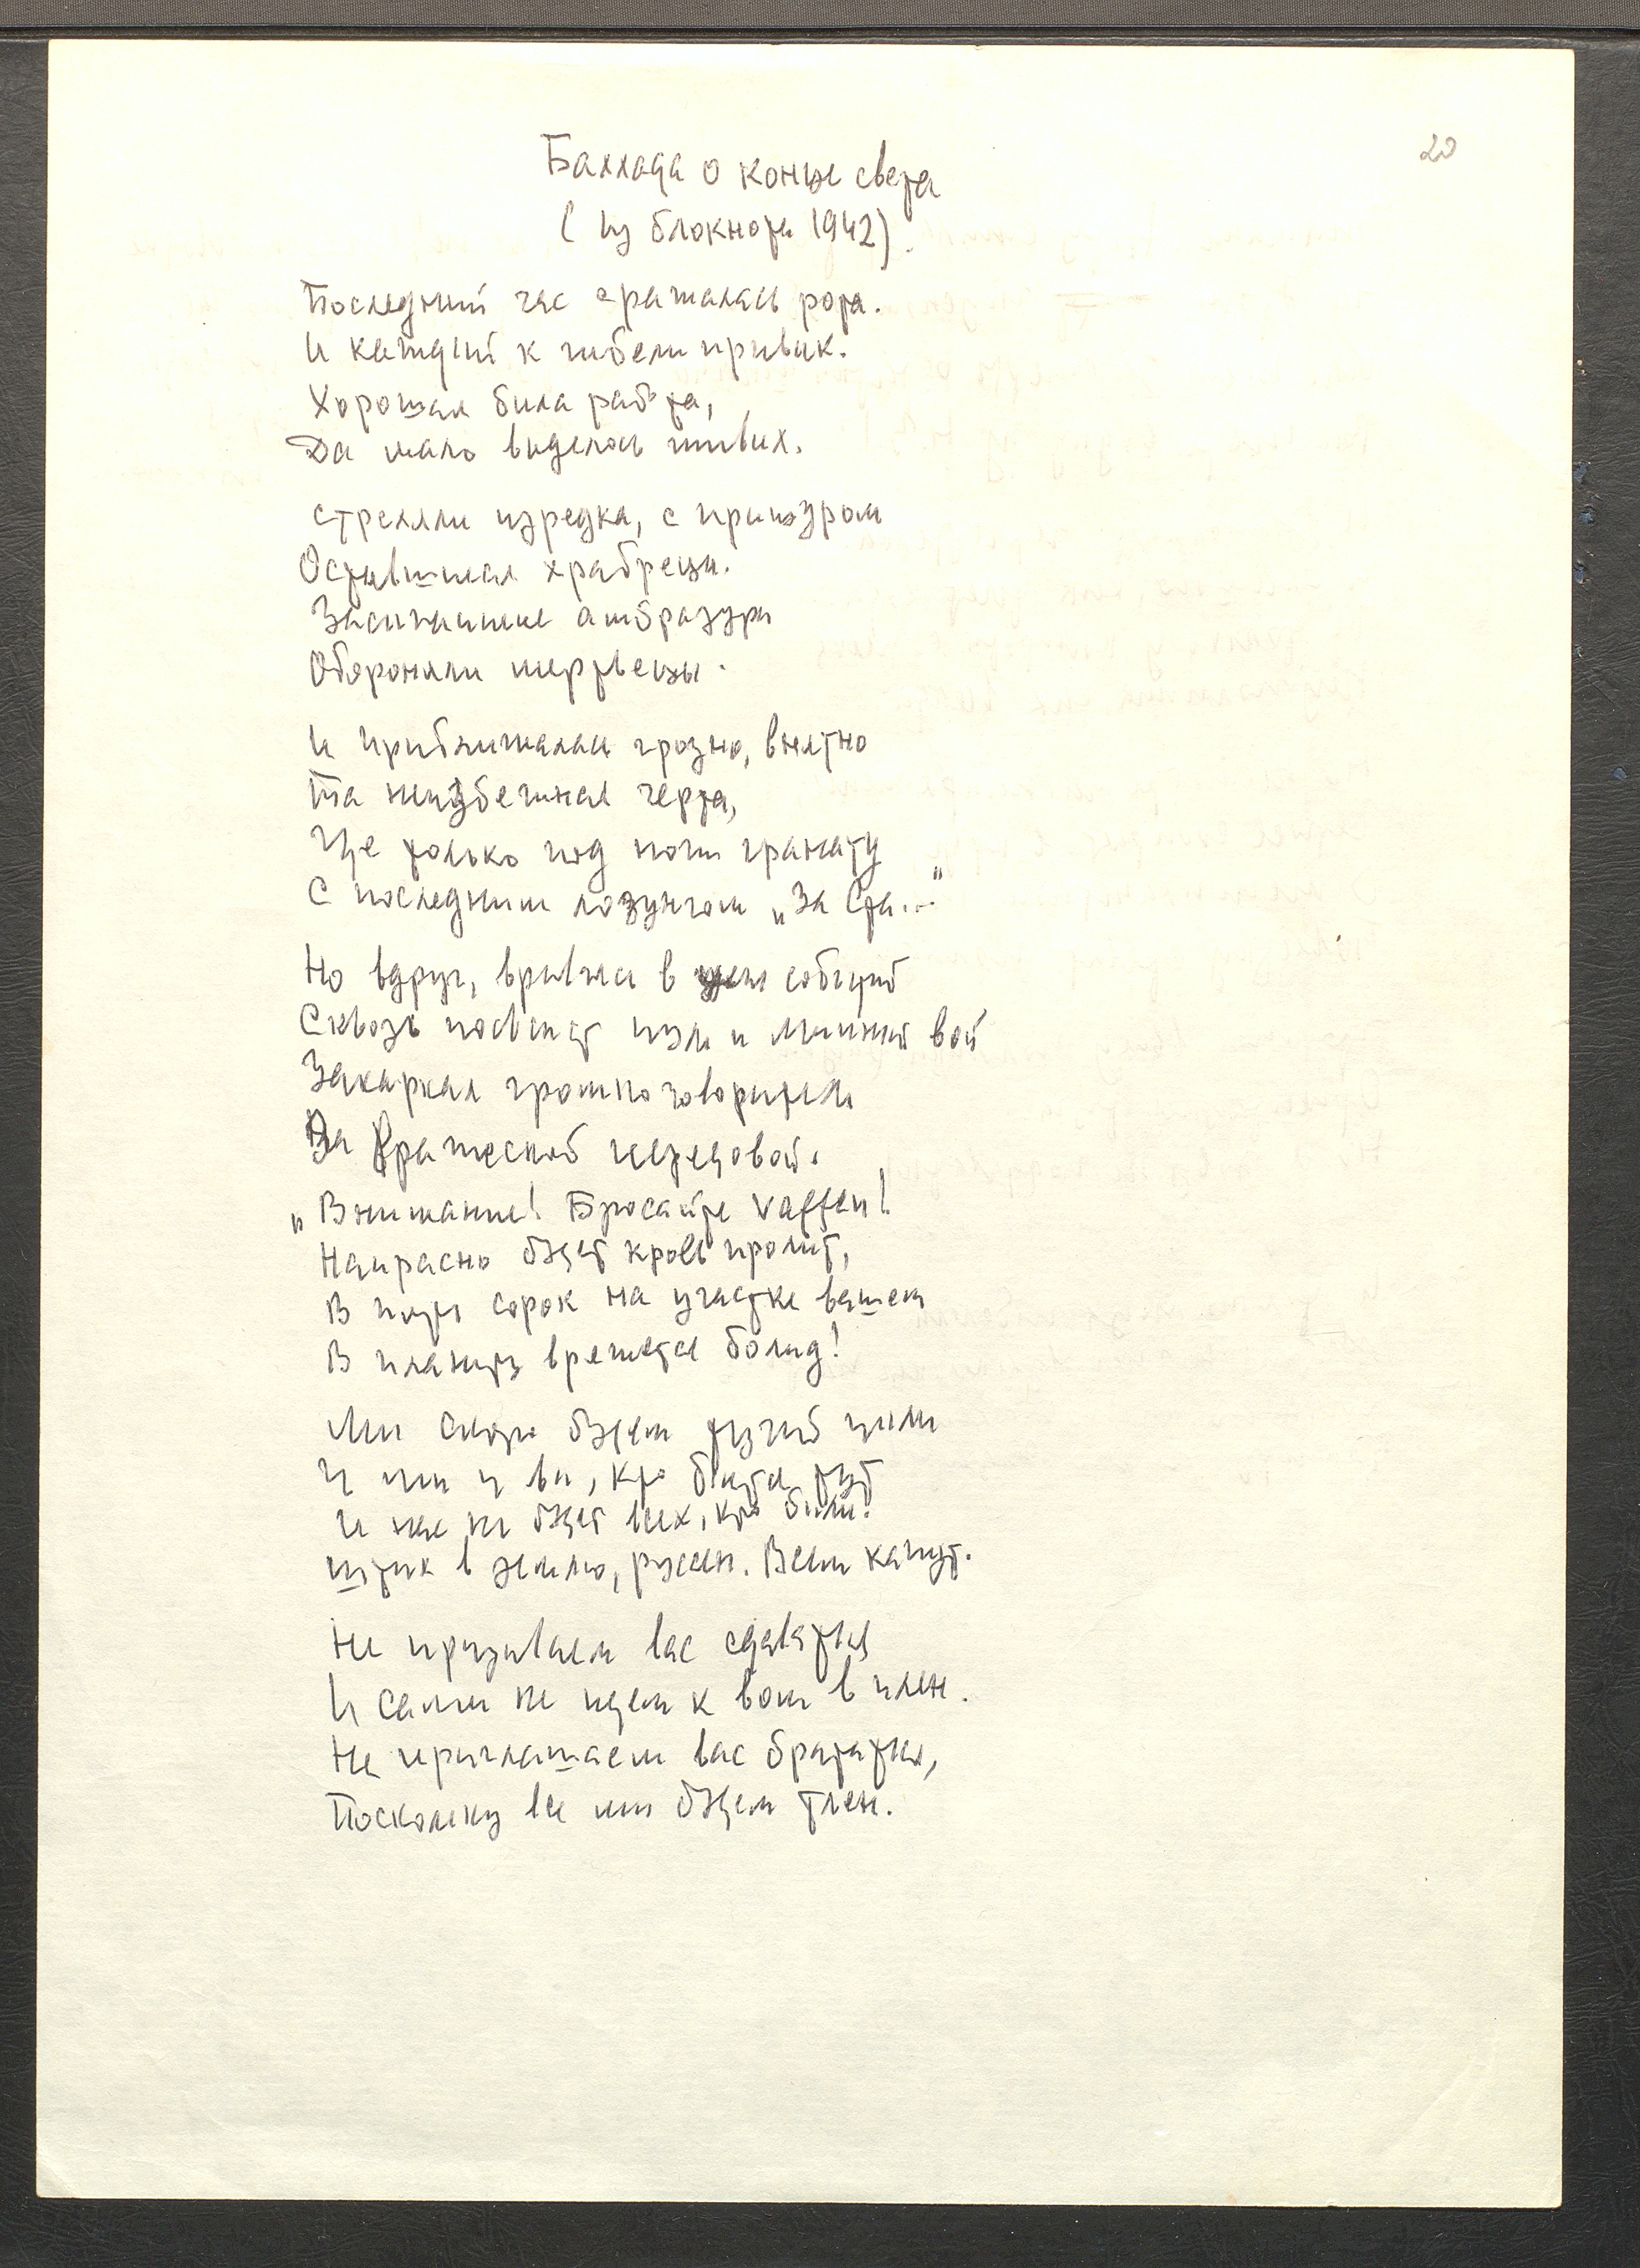 20
Баллада о конце света
(Из блокнота 1942).
Последний час сражалась рота.
И каждый к гибели привык.
Хорошая была работа,
Да мало виделось живых.
Стреляли изредка, с прищуром
Оставшиеся храбрецы.
Засыпанные амбразуры
Обороняли мертвецы.
И приближалась грозно, внятно
Та неизбежная черта,
Где только под ноги гранату
С последним лозунгом „За Ста..."
Но вдруг, врываясь в цепь событий
Сквозь посвист пуль и минный вой
Закаркал громкоговоритель
За вражеской передовой.
„Внимание! Бросайте Vaffen!
Напрасно будет кровь пролит,
В пять сорок на участке вашем
В планету врежется болид!
Мы скоро будем тучей пыли
И мы и вы, кто бьется тут
И нас не будет всех, кто были.
Штык в землю, руссен. Всем капут.
Не призываем вас сдаваться
И сами не идем к вам в плен.
Не приглашаем вас брататься,
Поскольку все мы будем тлен.